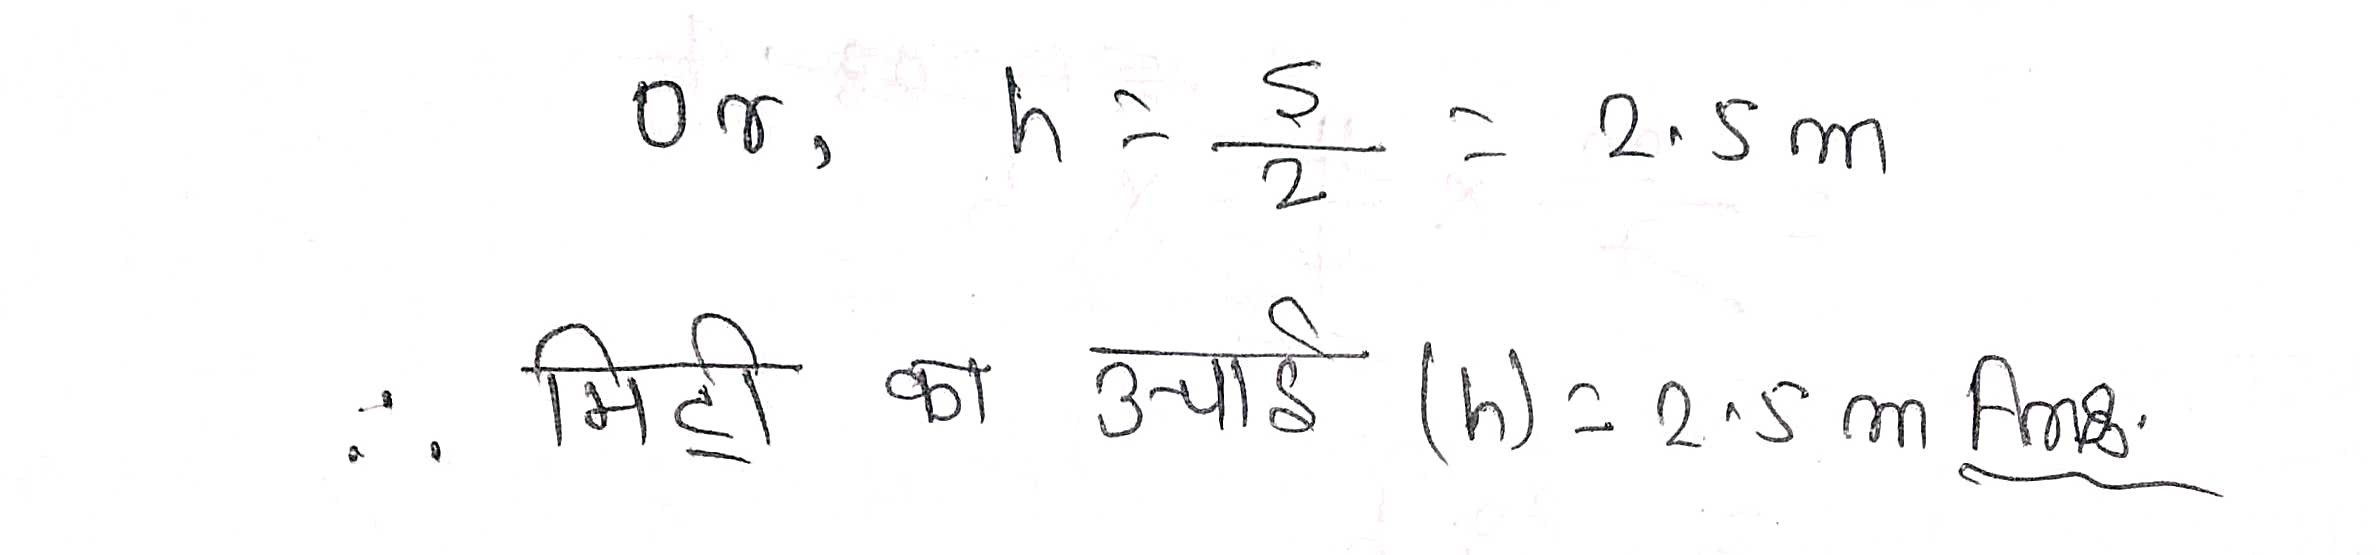 Or, h = 5/2 = 2.5 m
∴ मिट्टी का उचाई (h) = 2.5 m Ans.